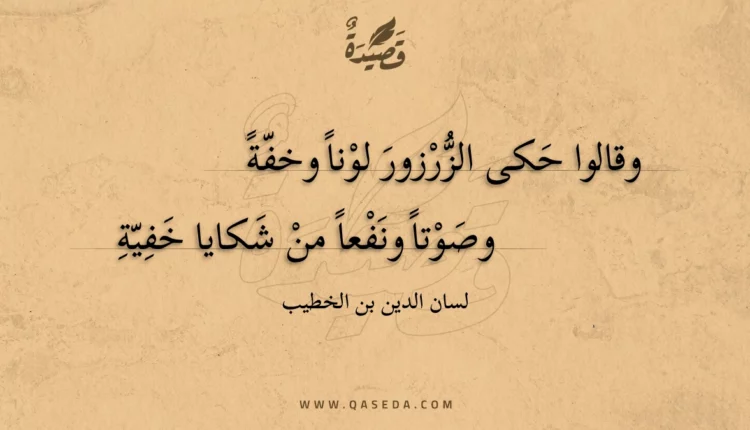 قَصِيدَةٌ
وقالوا حَكى الزُّرْزورَ لوْناً وخفّةً
وصَوْتاً ونَفْعاً منْ شَكايا خَفِيّةِ
لسان الدين بن الخطيب
WWW.QASEDA.COM